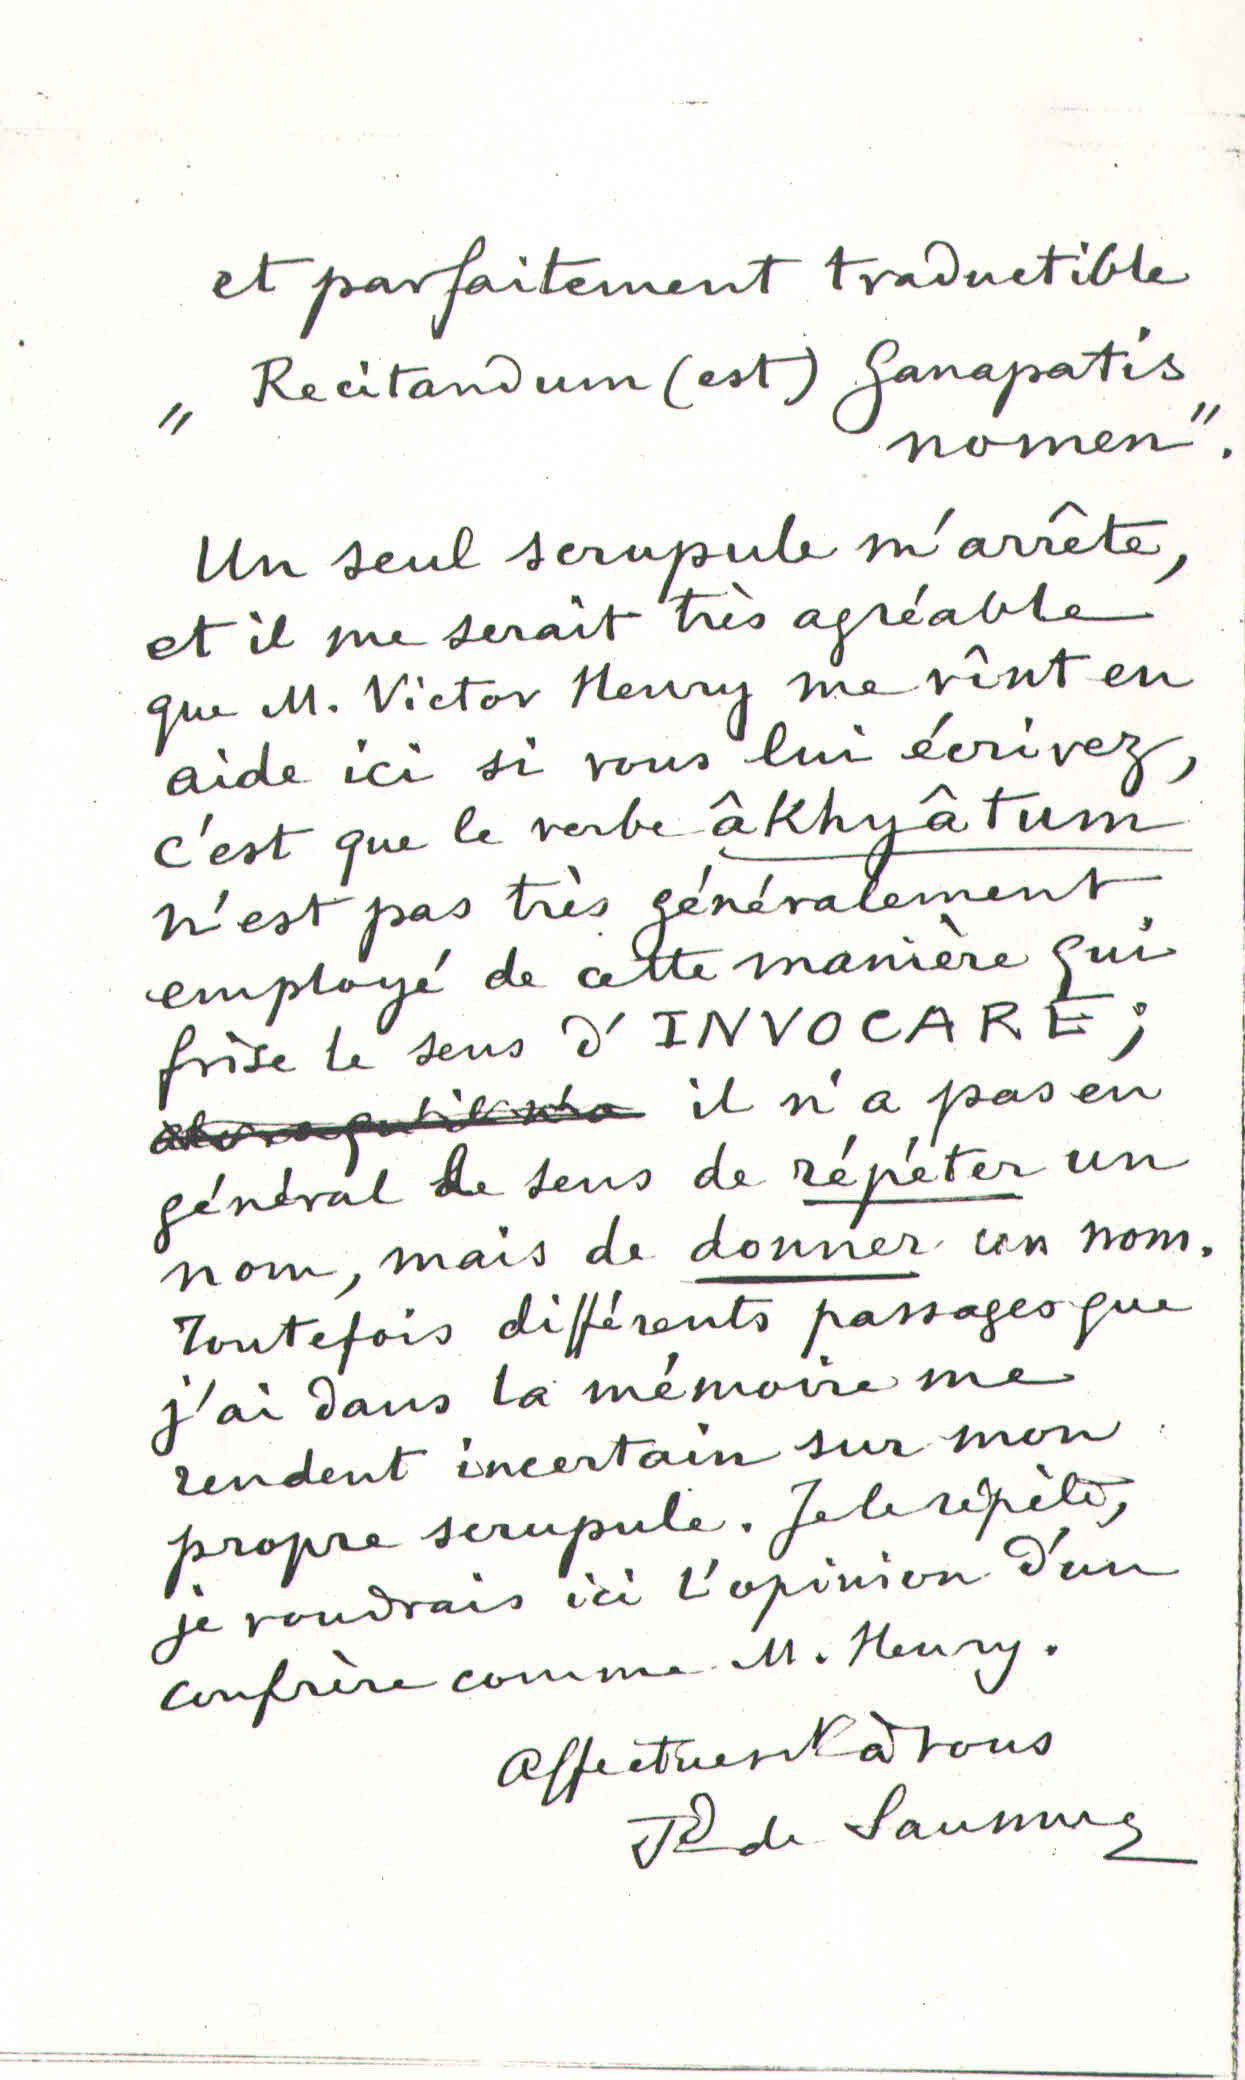 et parfaitement traductible
„ Recitandum (est) Ganapatis
nomen".
Un seul scrupule m'arrête,
et il me serait très agréable
que M. Victor Henry me vînt en
aide ici si vous lui écrivez,
c'est que le verbe âkhyâtum
n'est pas très généralement
employé de cette manière qui
frise le sens d'INVOCARE;
alors qu'il n'a il n'a pas en
général le sens de répéter un
nom, mais de donner un nom.
Toutefois différents passages que
j'ai dans la mémoire me
rendent incertain sur mon
propre scrupule. Je le répète,
je voudrais ici l'opinion d'un
confrère comme M. Henry.
Affectueust à vous
Fd de Saussure